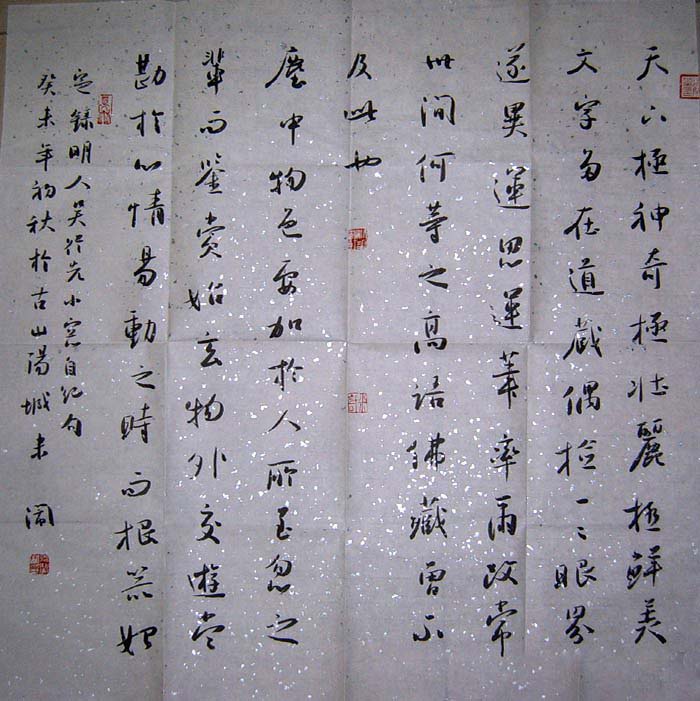 天下極神奇極壯麗極鮮美
文字多在道藏偶撿一二眼界
遂異運思運筆率爾改常
世間何等之高語佛藏曾不
及此也
塵中物色要加於人所至忽之
輩而鑒賞始玄物外交遊當
勘於心情易動之時而根器始
錄明人吳從先小窓自紀句
癸未年初秋於古山陽城未